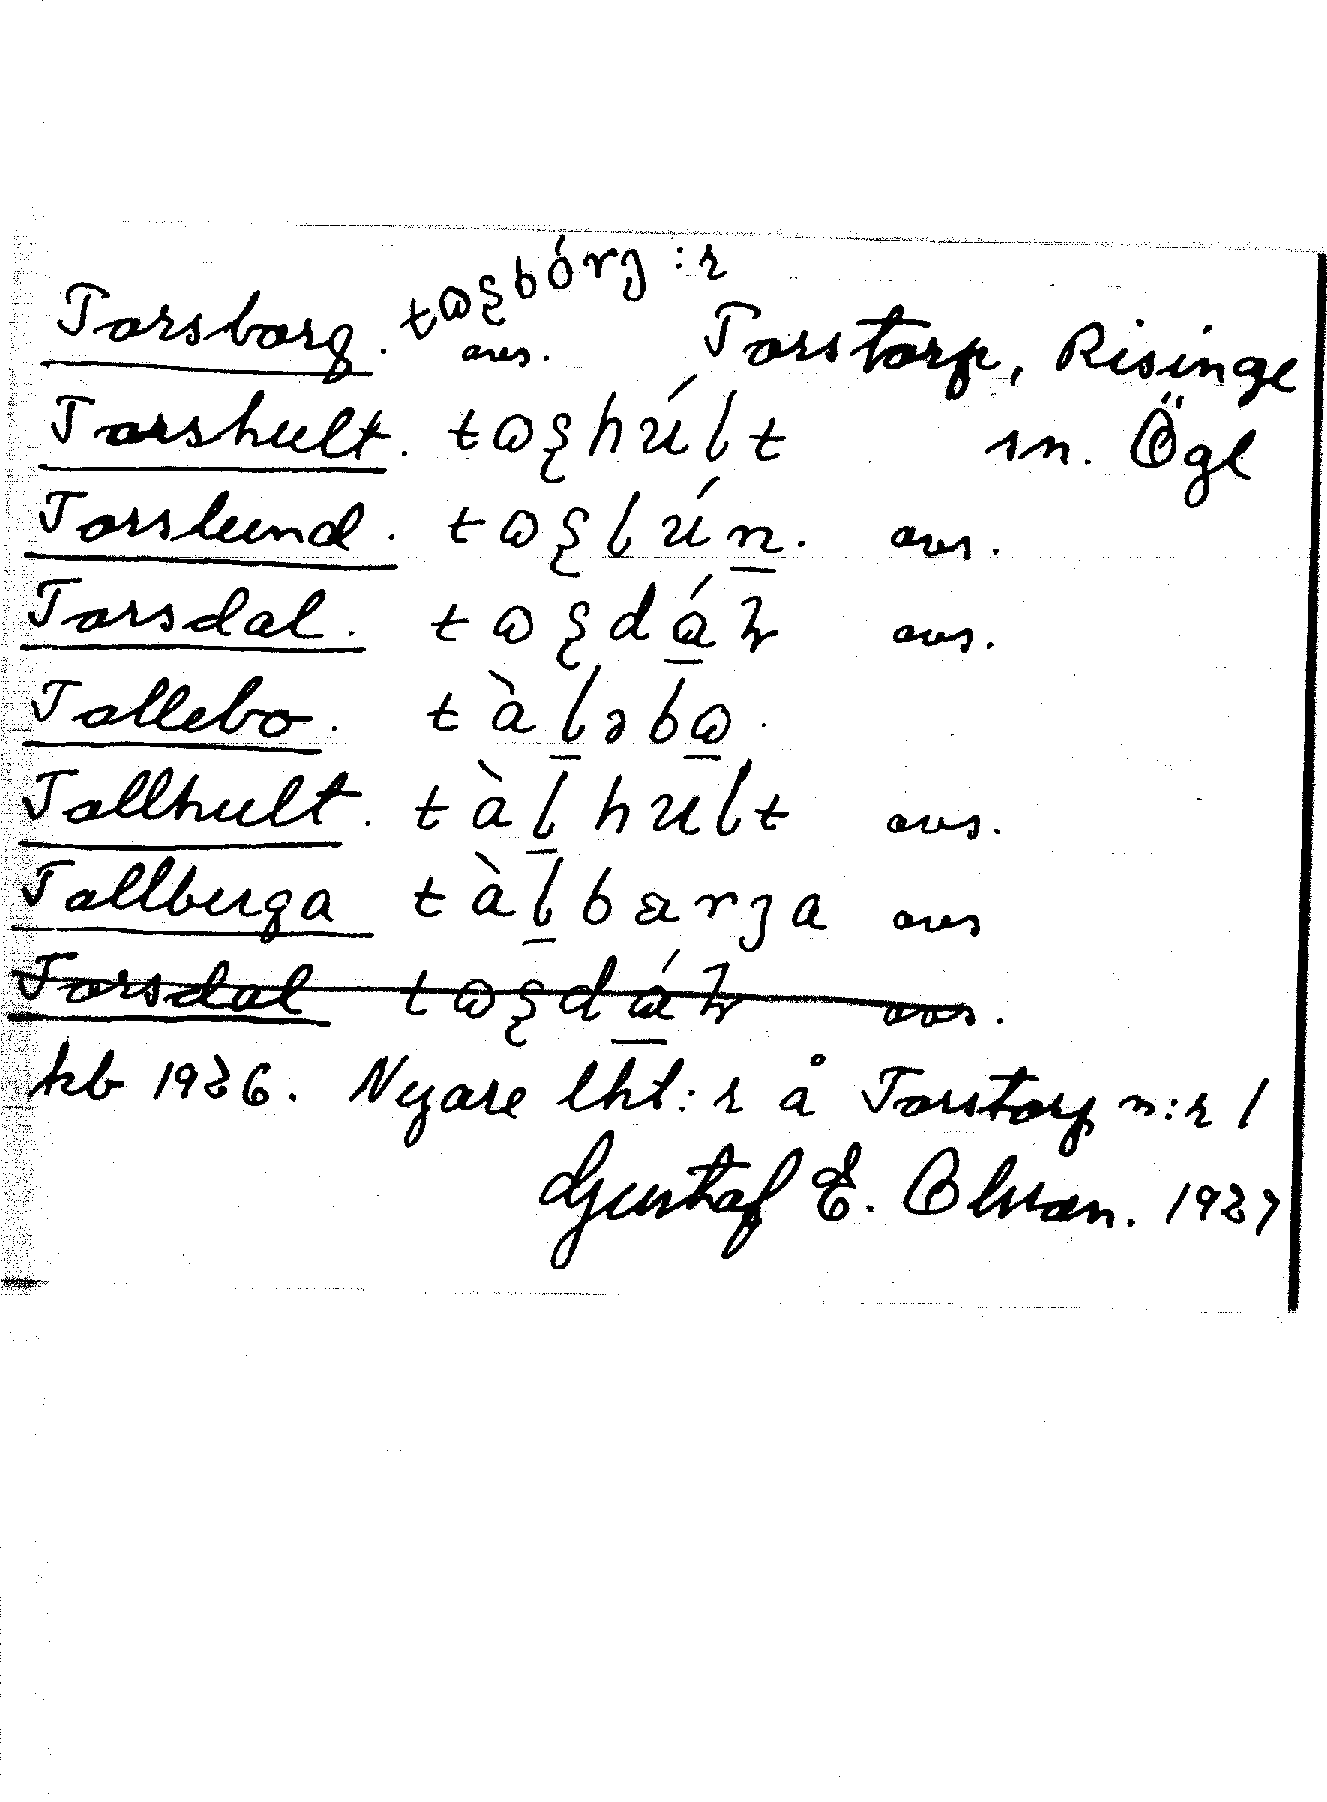 Torsborg. tɷʂbórj :r
avs. Torstorp, Risinge
Torshult. tɷʂhúlt sn. Ögl
Torslund. tɷʂlún̲. avs.
Torsdal. tɷʂdá̲ɽ avs.
Tallebo. tàl̲əbɷ̲.
Tallhult. tàl̲hult avs.
Tallberga tàl̲bærja avs
Torsdal tɷʂdá̲ɽ avs.
kb 1926. Nyare lht:r å Torstorp n:r 1
Gustaf E. Olsson. 1927